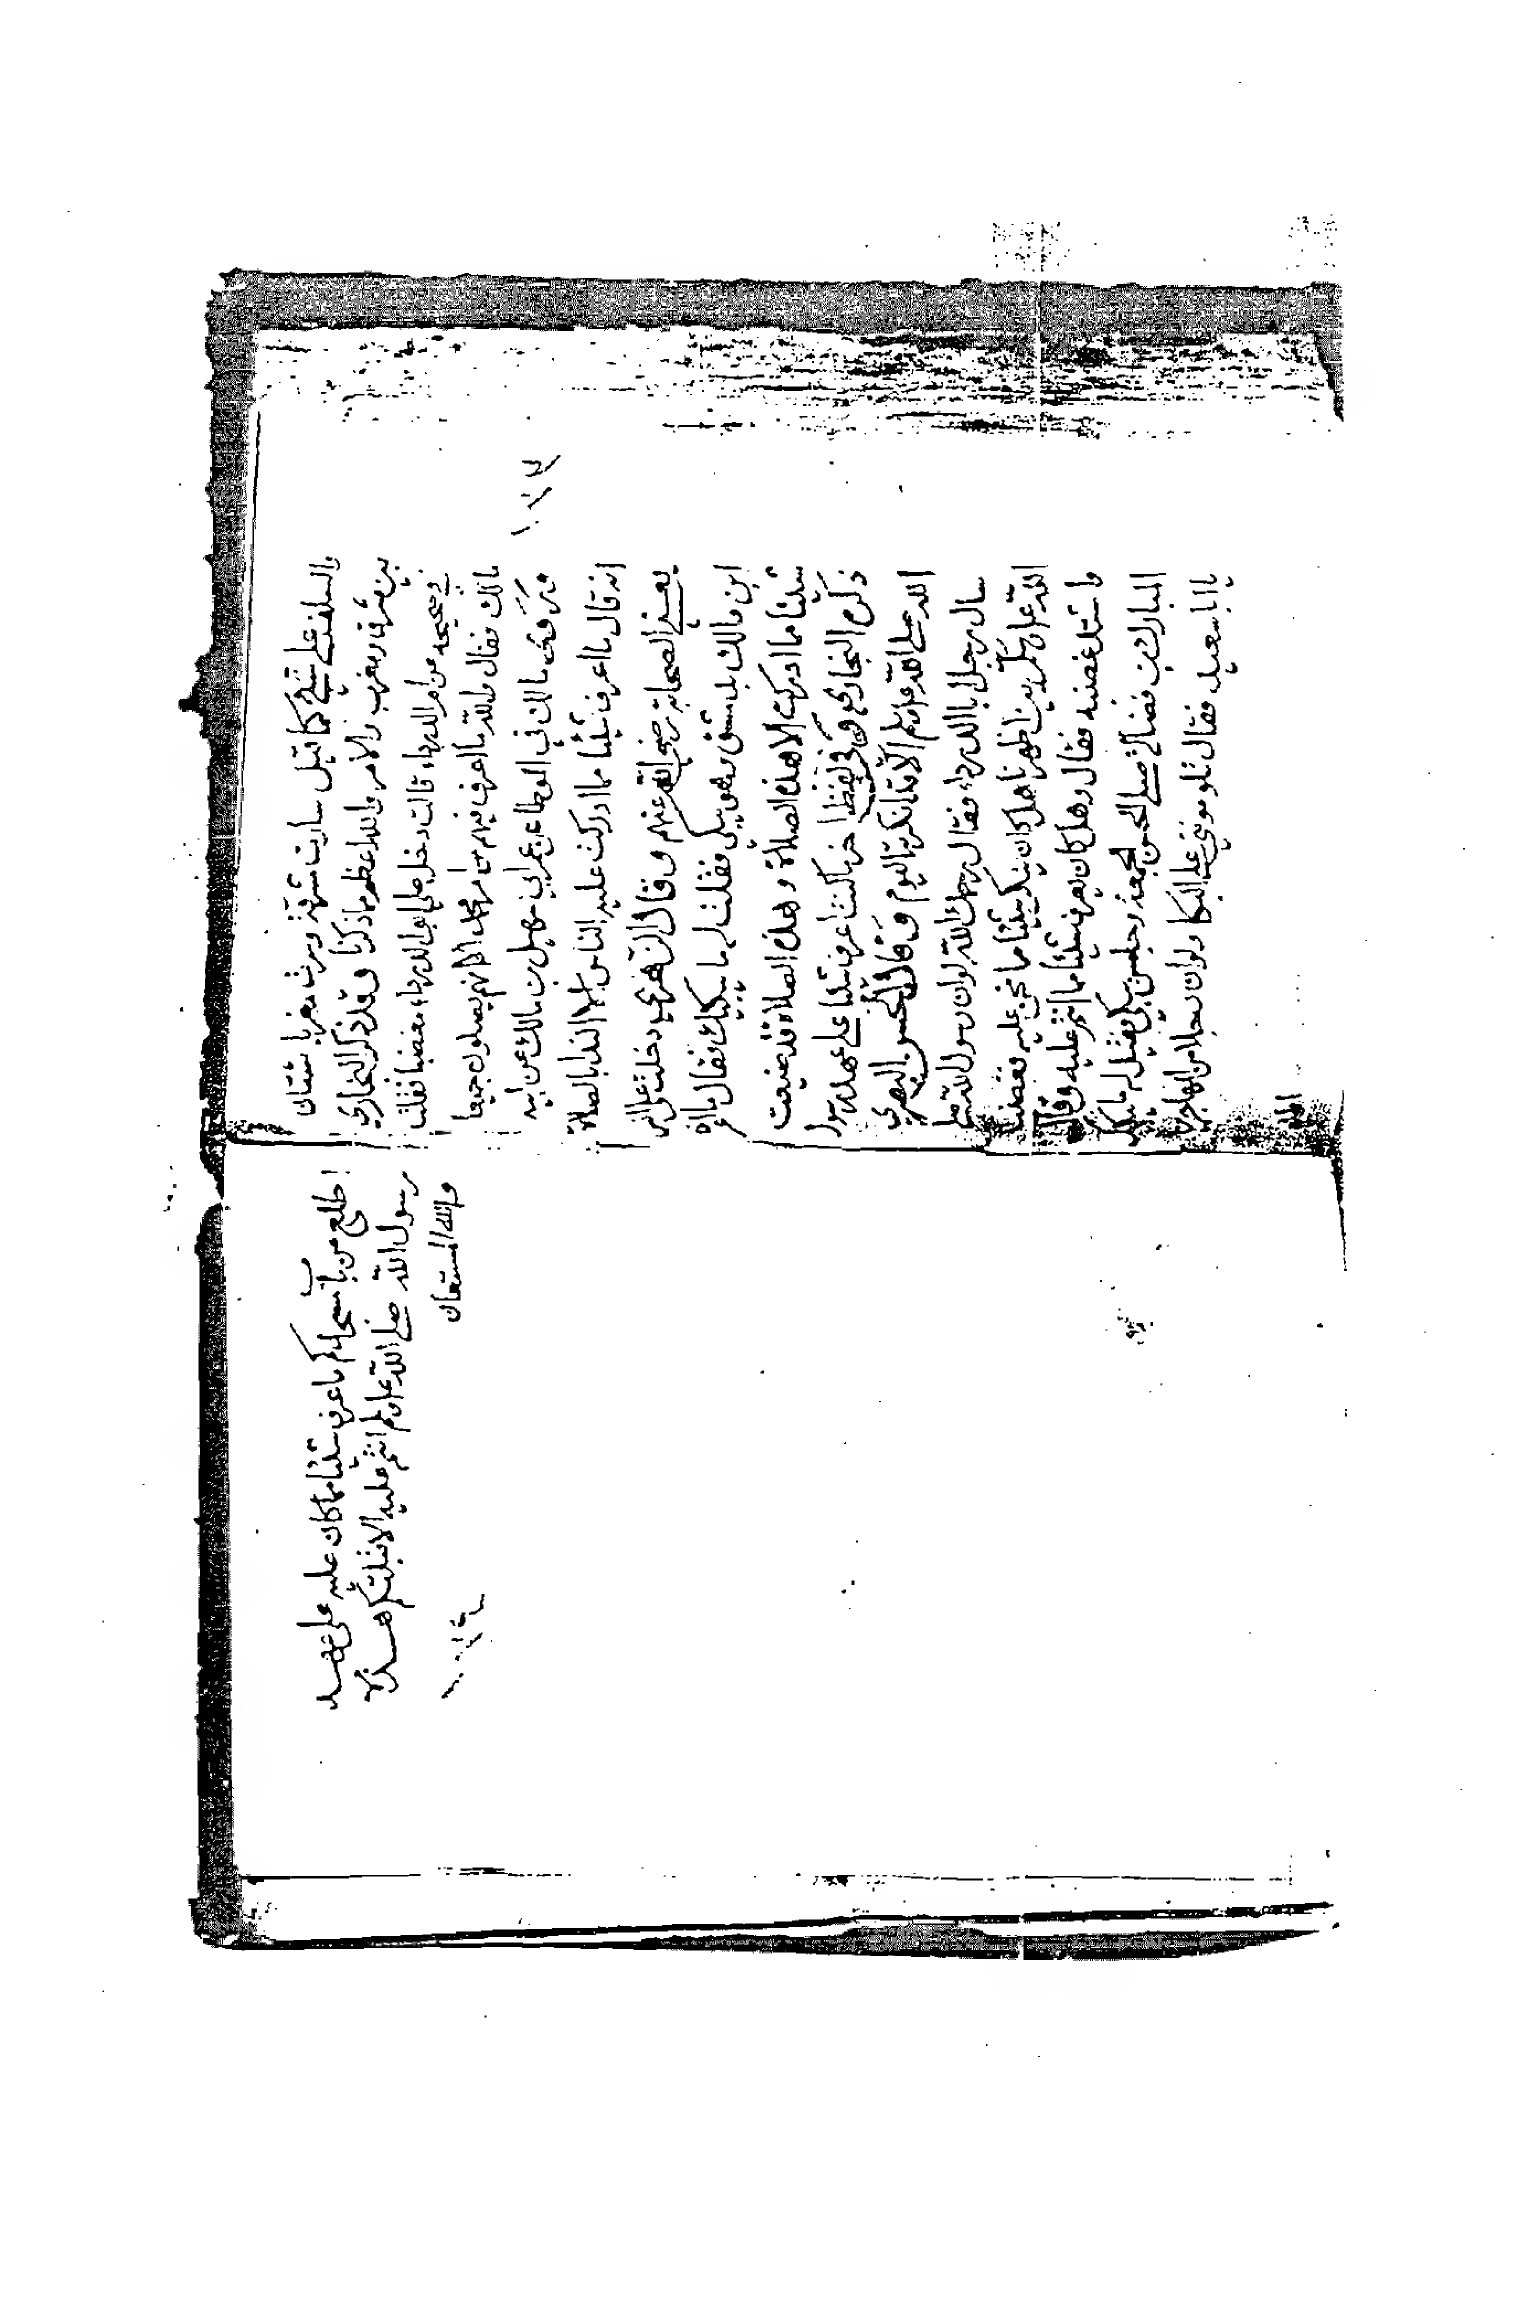 والسلف على شيء كما قيل سارت مشرقة وسرت مغربا شتان
بين مشرق ومغرب والامر والله اعظم مما ذكرنا وقد ذكر البخاري
في صحيحه عن ام الدرداء قالت دخل علي ابو الدرداء مغضبا فقلت
مالك فقال والله ما اعرف فيهم من امر محمد الا انهم يصلون جميعا
وروى مالك في الموطا عن عمه ابي سهيل بن مالك عن ابيه
انه قال ما اعرف شيئا مما ادركت عليه الناس الا الندا بالصلاة
يعني الصحابة رضي الله عنهم وقال الزهري دخلت على انس
ابن مالك بدمشق وهو يبكي فقلت له ما يبكيك فقال ما اعرف
شيئا مما ادركت الا هذه الصلاة وهذه الصلاة قد ضيعت
ذكره البخاري وفي لفظ اخر ما كنت اعرف شيئا على عهد رسول
الله صلى الله عليه وسلم الا قد انكرته اليوم وقال الحسن البصري
سال رجل ابا الدرداء فقال رحمك الله لو ان رسول الله صلى
الله عليه وسلم بين اظهرنا هل كان ينكر شيئا مما نحن عليه فغضب
واشتد غضبه فقال وهل كان يعرف شيئا مما انتم عليه وقال
المبارك بن فضالة صلى الحسن الجمعة وجلس يبكي فقيل له ما يبكيك
يا ابا سعيد فقال تلوموني على البكا ولو ان رجلا من المهاجرين
اطلع من باب مسجدكم ما عرف شيئا مما كان عليه على عهد
رسول الله صلى الله عليه وسلم انتم عليه الا قبلتكم هذه
والله المستعان